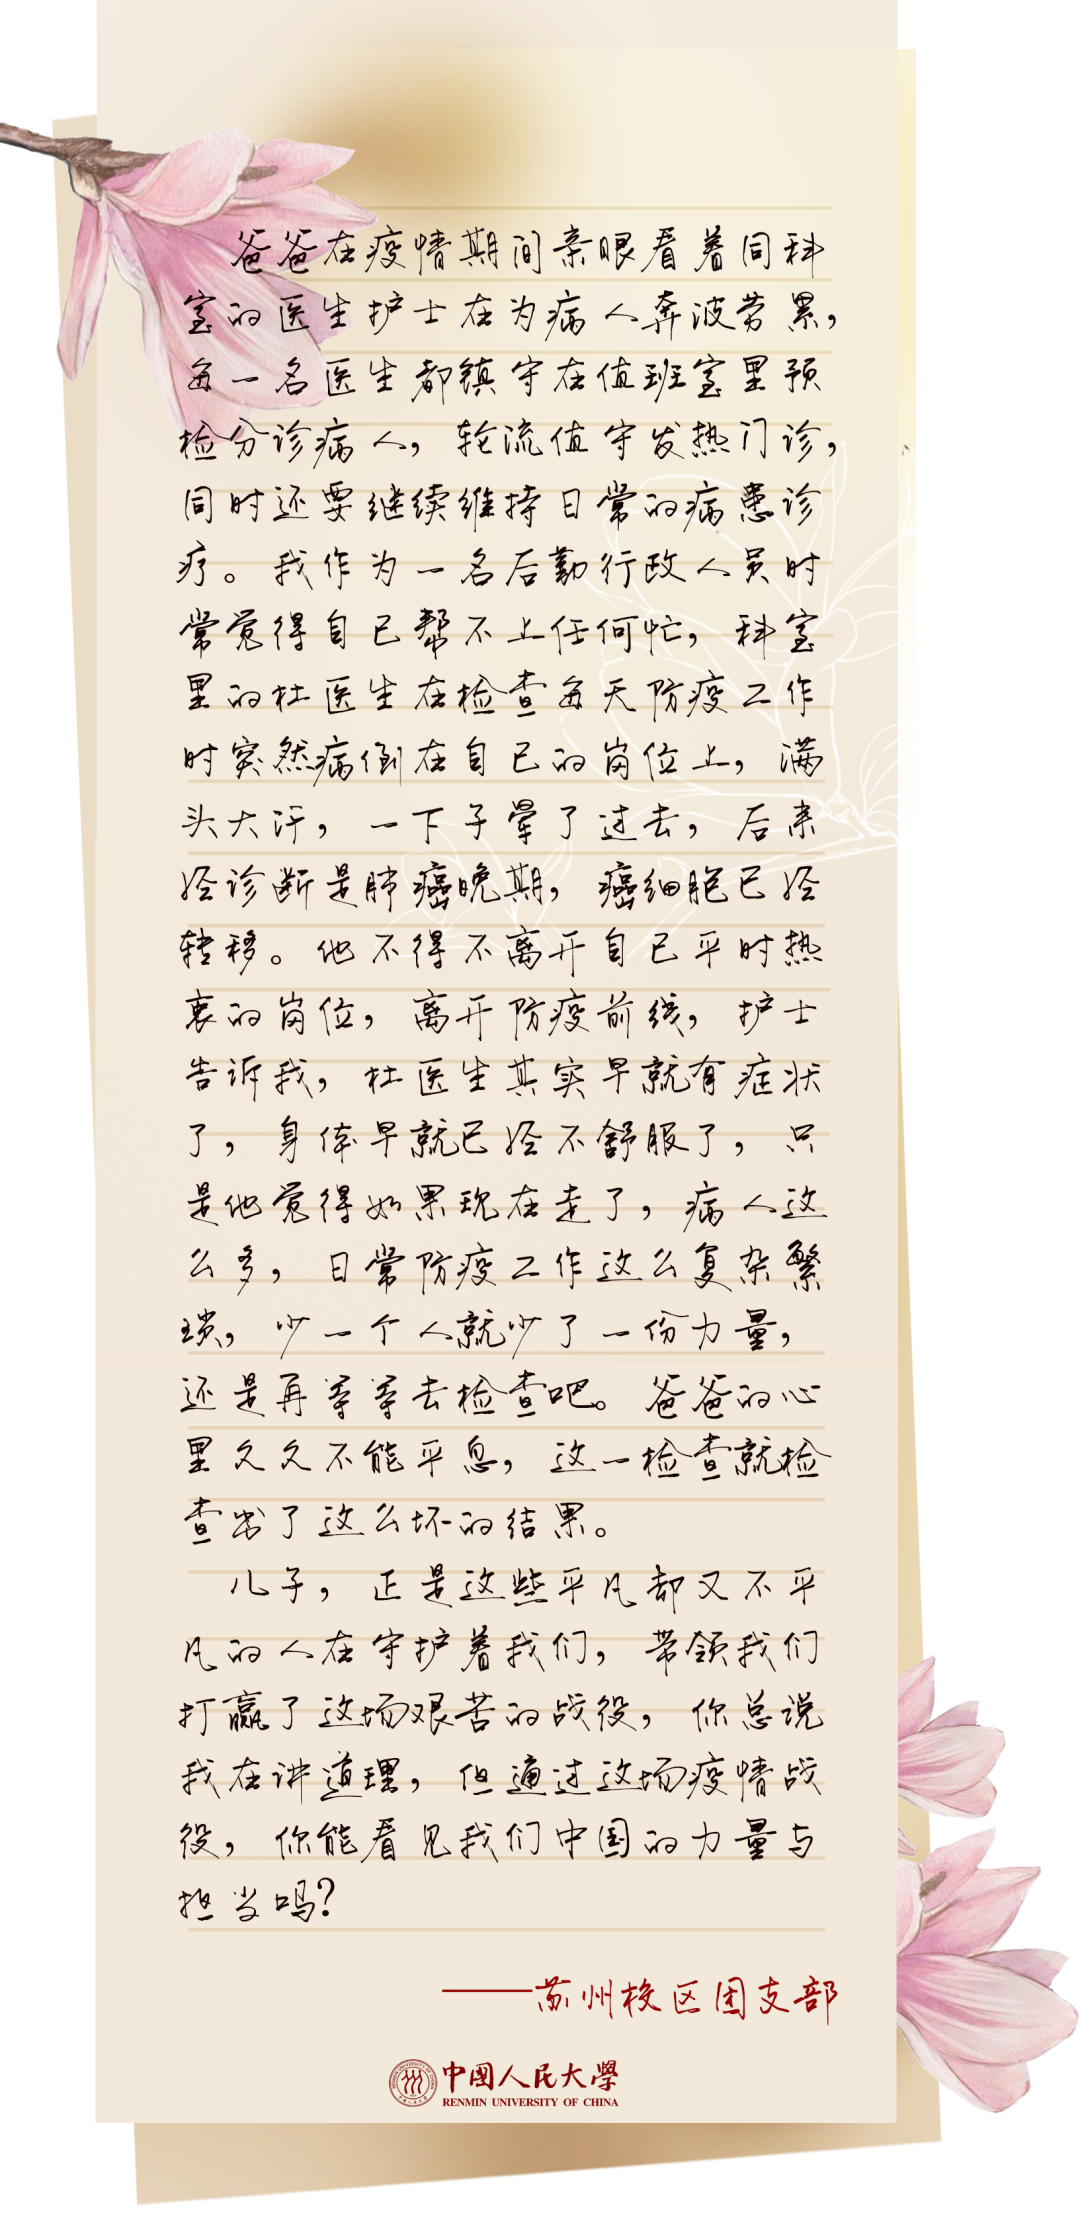 爸爸在疫情期间亲眼看着同科
室的医生护士在为病人奔波劳累，
每一名医生都镇守在值班室里预
检分诊病人，轮流值守发热门诊，
同时还要继续维持日常的病患诊
疗。我作为一名后勤行政人员时
常觉得自己帮不上任何忙，科室
里的杜医生在检查每天防疫工作
时突然病倒在自己的岗位上，满
头大汗，一下子晕了过去，后来
经诊断是肺癌晚期，癌细胞已经
转移。他不得不离开自己平时热
衷的岗位，离开防疫前线，护士
告诉我，杜医生其实早就有症状
了，身体早就已经不舒服了，只
是他觉得如果现在走了，病人这
么多，日常防疫工作这么复杂繁
琐，少一个人就少了一份力量，
还是再等等去检查吧。爸爸的心
里久久不能平息，这一检查就检
查出了这么坏的结果。
儿子，正是这些平凡却又不平
凡的人在守护着我们，带领我们
打赢了这场艰苦的战役，你总说
我在讲道理，但通过这场疫情战
役，你能看见我们中国的力量与
担当吗？
——苏州校区团支部
中國人民大學
RENMIN UNIVERSITY OF CHINA